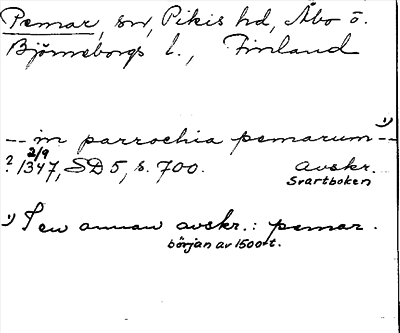 Pemar, sn, Pikis hd, Åbo o.
Björneborgs l., Finland
-- in parrochia pemarum 1) --
2/9
? 1347, SD 5, s. 700. avskr.
Svartboken
1) I en annan avskr.: pemar.
början av 1500-t.